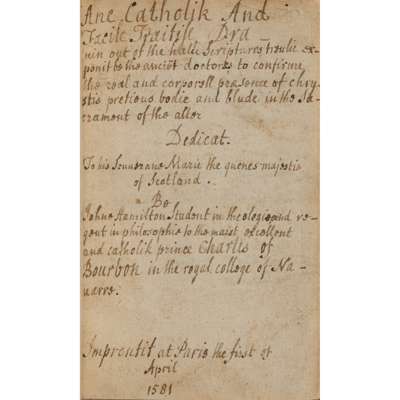 Ane Catholik And
Facile Traitise Dra-
uin out of the halie scriptures treulie ex-
ponit be the ancient doctores to confirme
the real and corporell presence of chry-
stis pretious bodie and blude in the sa-
crament of the alter
Dedicat.
To his souuerane Marie the quenes majestie
of Scotland.
Be
Johne Hamilton student in theologie and re-
gent in philosophie to the maist excellent
and catholik prince Charlis of
Bourbon in the royal college of Na-
uarre.
Imprentit at Paris the first of
April
1581